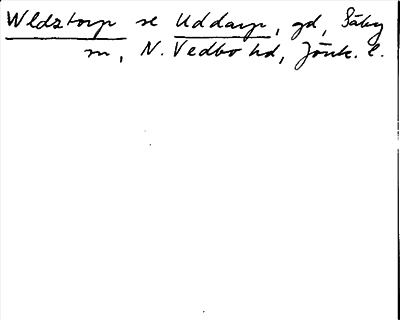 Wldztorp se Uddarp, gd, Säby
m, N. Vedbo hd, Jönk. l.